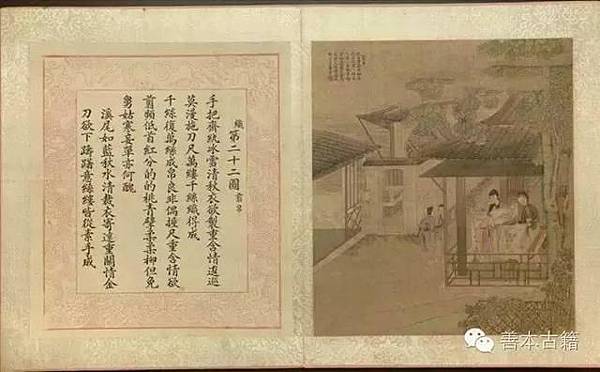 織第二十二圖 剪帛
手把齊紈冰雪清秋衣欲製重含情逡巡
莫漫拖刀尺萬縷千絲織得成
千絲復萬縷成帛良非偶握尺重含情欲
剪頻低首紅分的的桃青擘柔柔柳但免
舅姑寒妾單亦何醜
溪尾如藍秋水清裁衣寄遠重關情金
刀欲下躊躇意絲縷皆從素手成
善本古籍